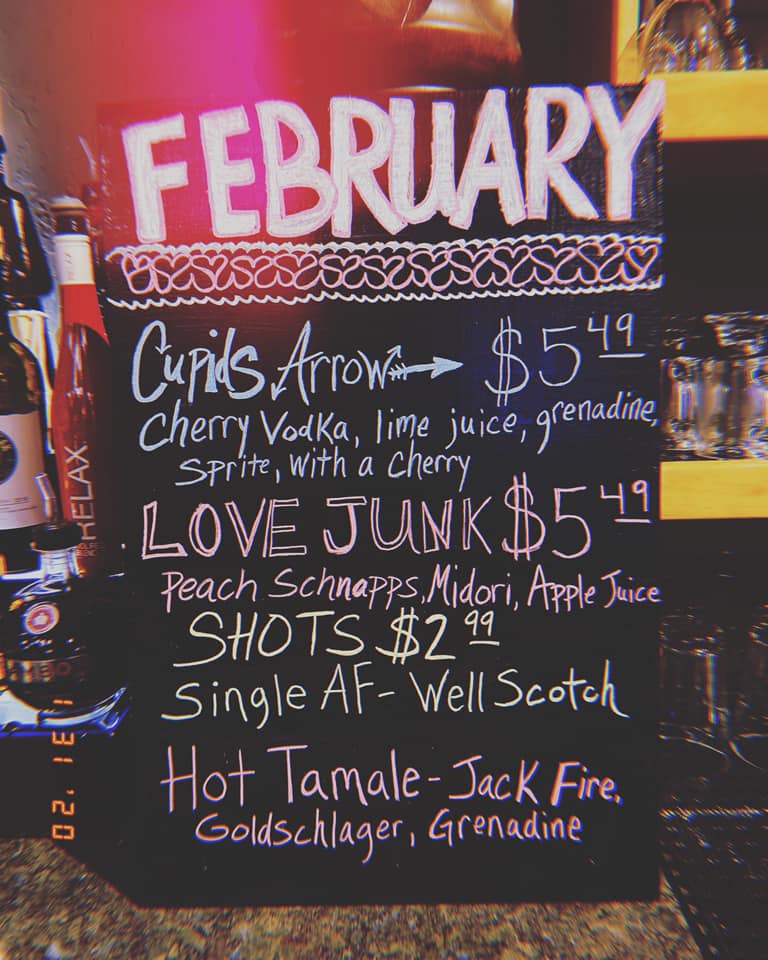 FEBRUARY
Cupids Arrow $5 49
Cherry Vodka, lime juice, grenadine,
Sprite, with a cherry
LOVE JUNK $5 49
Peach Schnapps, Midori, Apple Juice
SHOTS $2 99
Single AF - Well Scotch
Hot Tamale - Jack Fire,
Goldschlager, Grenadine
RELAX